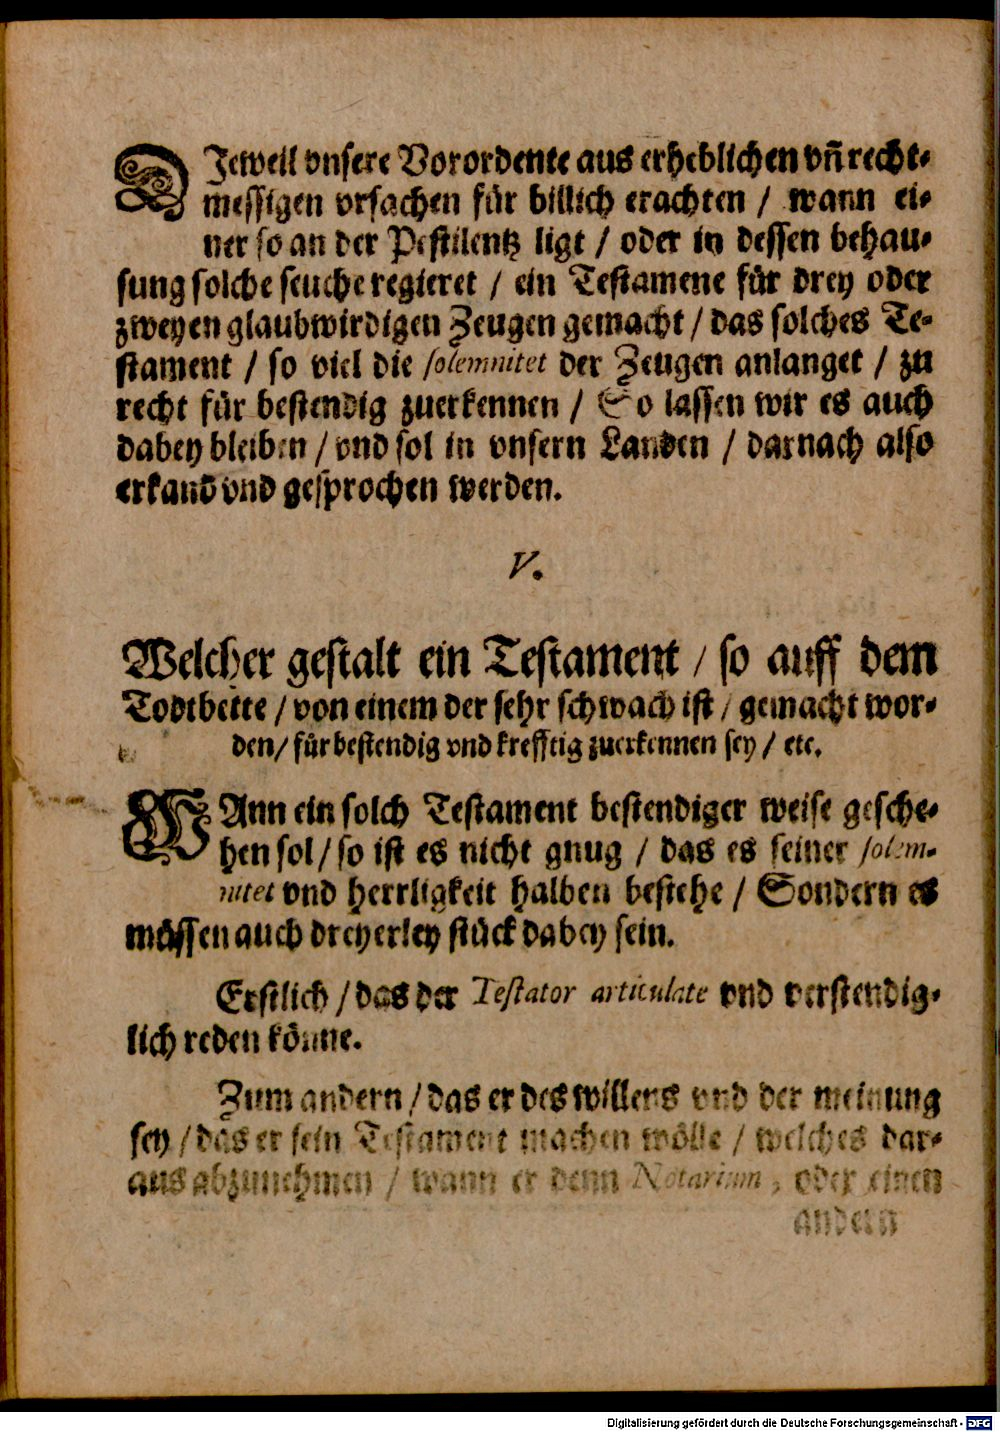 DJeweil vnsere Verordente aus erheblichen vn̄ recht-
messigen vrsachen für billich erachten / wann ei-
ner so an der Pestilentz ligt / oder in dessen behau-
sung solche seuche regieret / ein Testamene für drey oder
zweyen glaubwirdigen Zeugen gemacht / das solches Te-
stament / so viel die solemnitet der Zeugen anlanget / zu
recht für bestendig zuerkennen / So lassen wir es auch
dabey bleiben / vnd sol in vnsern Landen / darnach also
erkand vnd gesprochen werden.
V.
Welcher gestalt ein Testament / so auff dem
Todtbette / von einem der sehr schwach ist / gemacht wor-
den / für bestendig vnd krefftig zuerkennen sey / etc.
WAnn ein solch Testament bestendiger weise gesche-
hen sol / so ist es nicht gnug / das es seiner solem-
nitet vnd herrligkeit halben bestehe / Sondern es
müssen auch dreyerley stück dabey sein.
Erstlich / das der Testator articulate vnd verstendig-
lich reden könne.
Zum andern / das er des willens vnd der meinung
sey / das er sein Testament machen wölle / welches dar-
aus abzunehmen / wann er denn Notarium, oder einen
andern
Digitalisierung gefördert durch die Deutsche Forschungsgemeinschaft - DFG